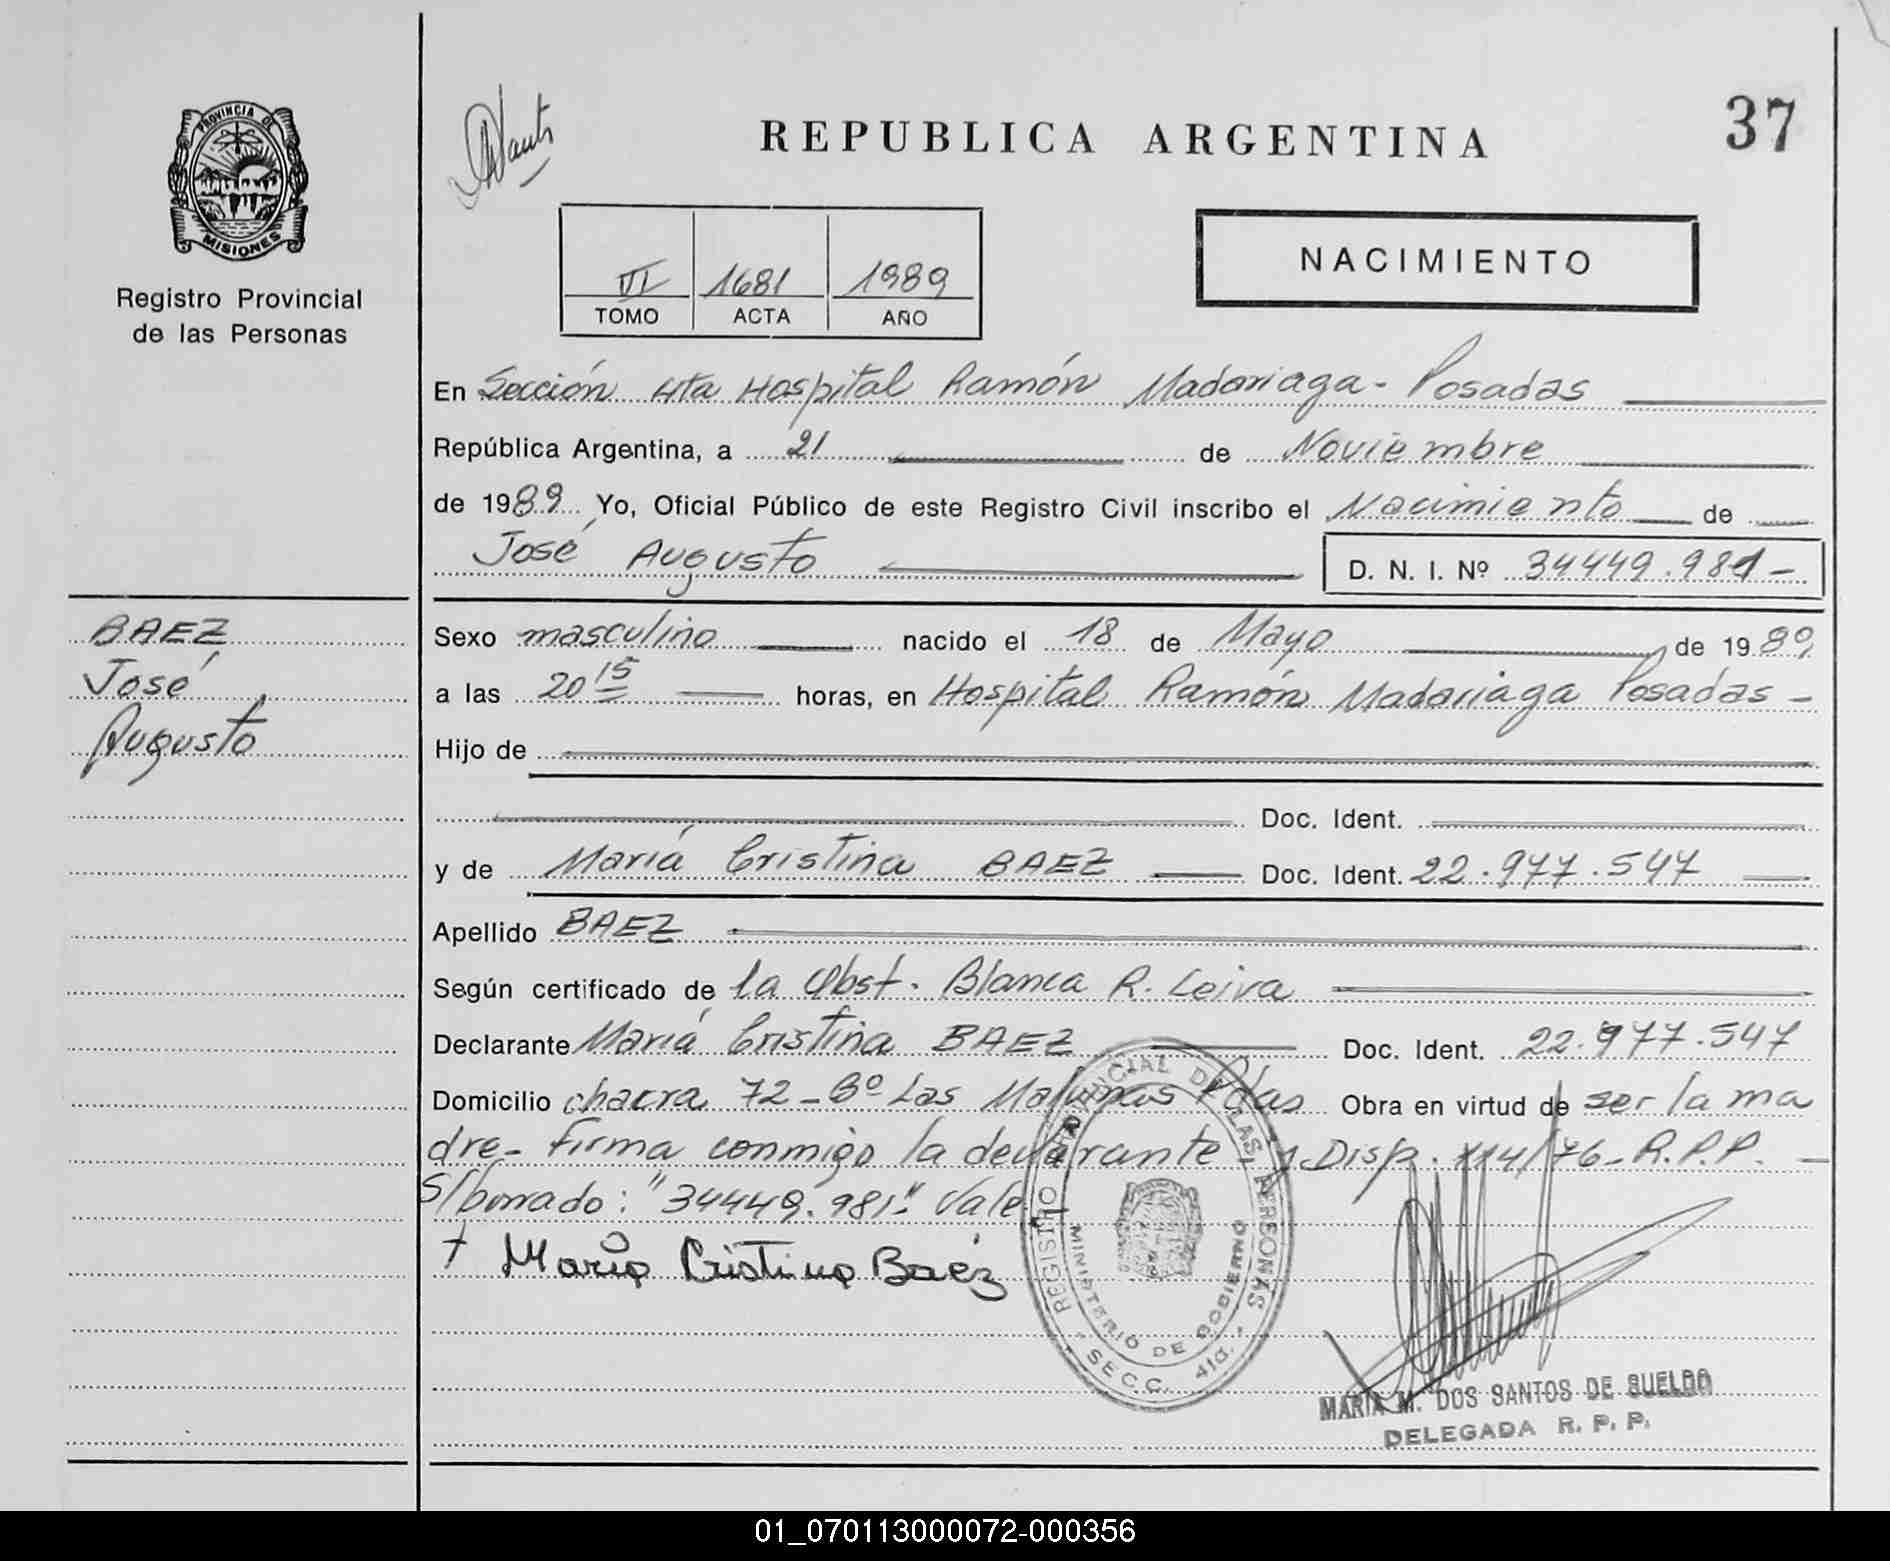 PROVINCIA DE
MISIONES
Registro Provincial
de las Personas
REPUBLICA ARGENTINA
37
VI 1681 1989
TOMO ACTA AÑO
NACIMIENTO
En Sección 4ta Hospital Ramón Madariaga - Posadas
República Argentina, a 21 de Noviembre
de 1989 Yo, Oficial Público de este Registro Civil inscribo el Nacimiento de
José Augusto D. N. I. Nº 34449.981-
BAEZ
José
Augusto
Sexo masculino nacido el 18 de Mayo de 1989
a las 20 15 horas, en Hospital Ramón Madariaga Posadas -
Hijo de
Doc. Ident.
y de María Cristina BAEZ Doc. Ident. 22.977.547
Apellido BAEZ
Según certificado de la Obst. Blanca R. Leiva
Declarante María Cristina BAEZ Doc. Ident. 22.977.547
Domicilio chacra 72 - Bº Las Malvinas Pdas Obra en virtud de ser la ma
dre - Firma conmigo la declarante - Disp. 114/76 - R.P.P. -
S/borrado: "34449.981" Vale -
+ María Cristina Baéz
REGISTRO PROVINCIAL DE LAS PERSONAS
MINISTERIO DE GOBIERNO
SECC. 4ta.
MARIA M. DOS SANTOS DE SUELDO
DELEGADA R. P. P.
01_070113000072-000356